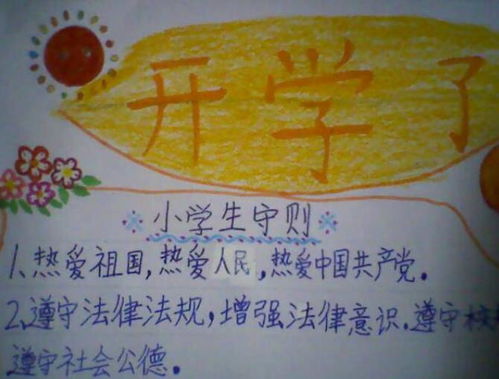 开学了
小学生守则
1、热爱祖国,热爱人民,热爱中国共产党。
2、遵守法律法规,增强法律意识.遵守校
遵守社会公德。